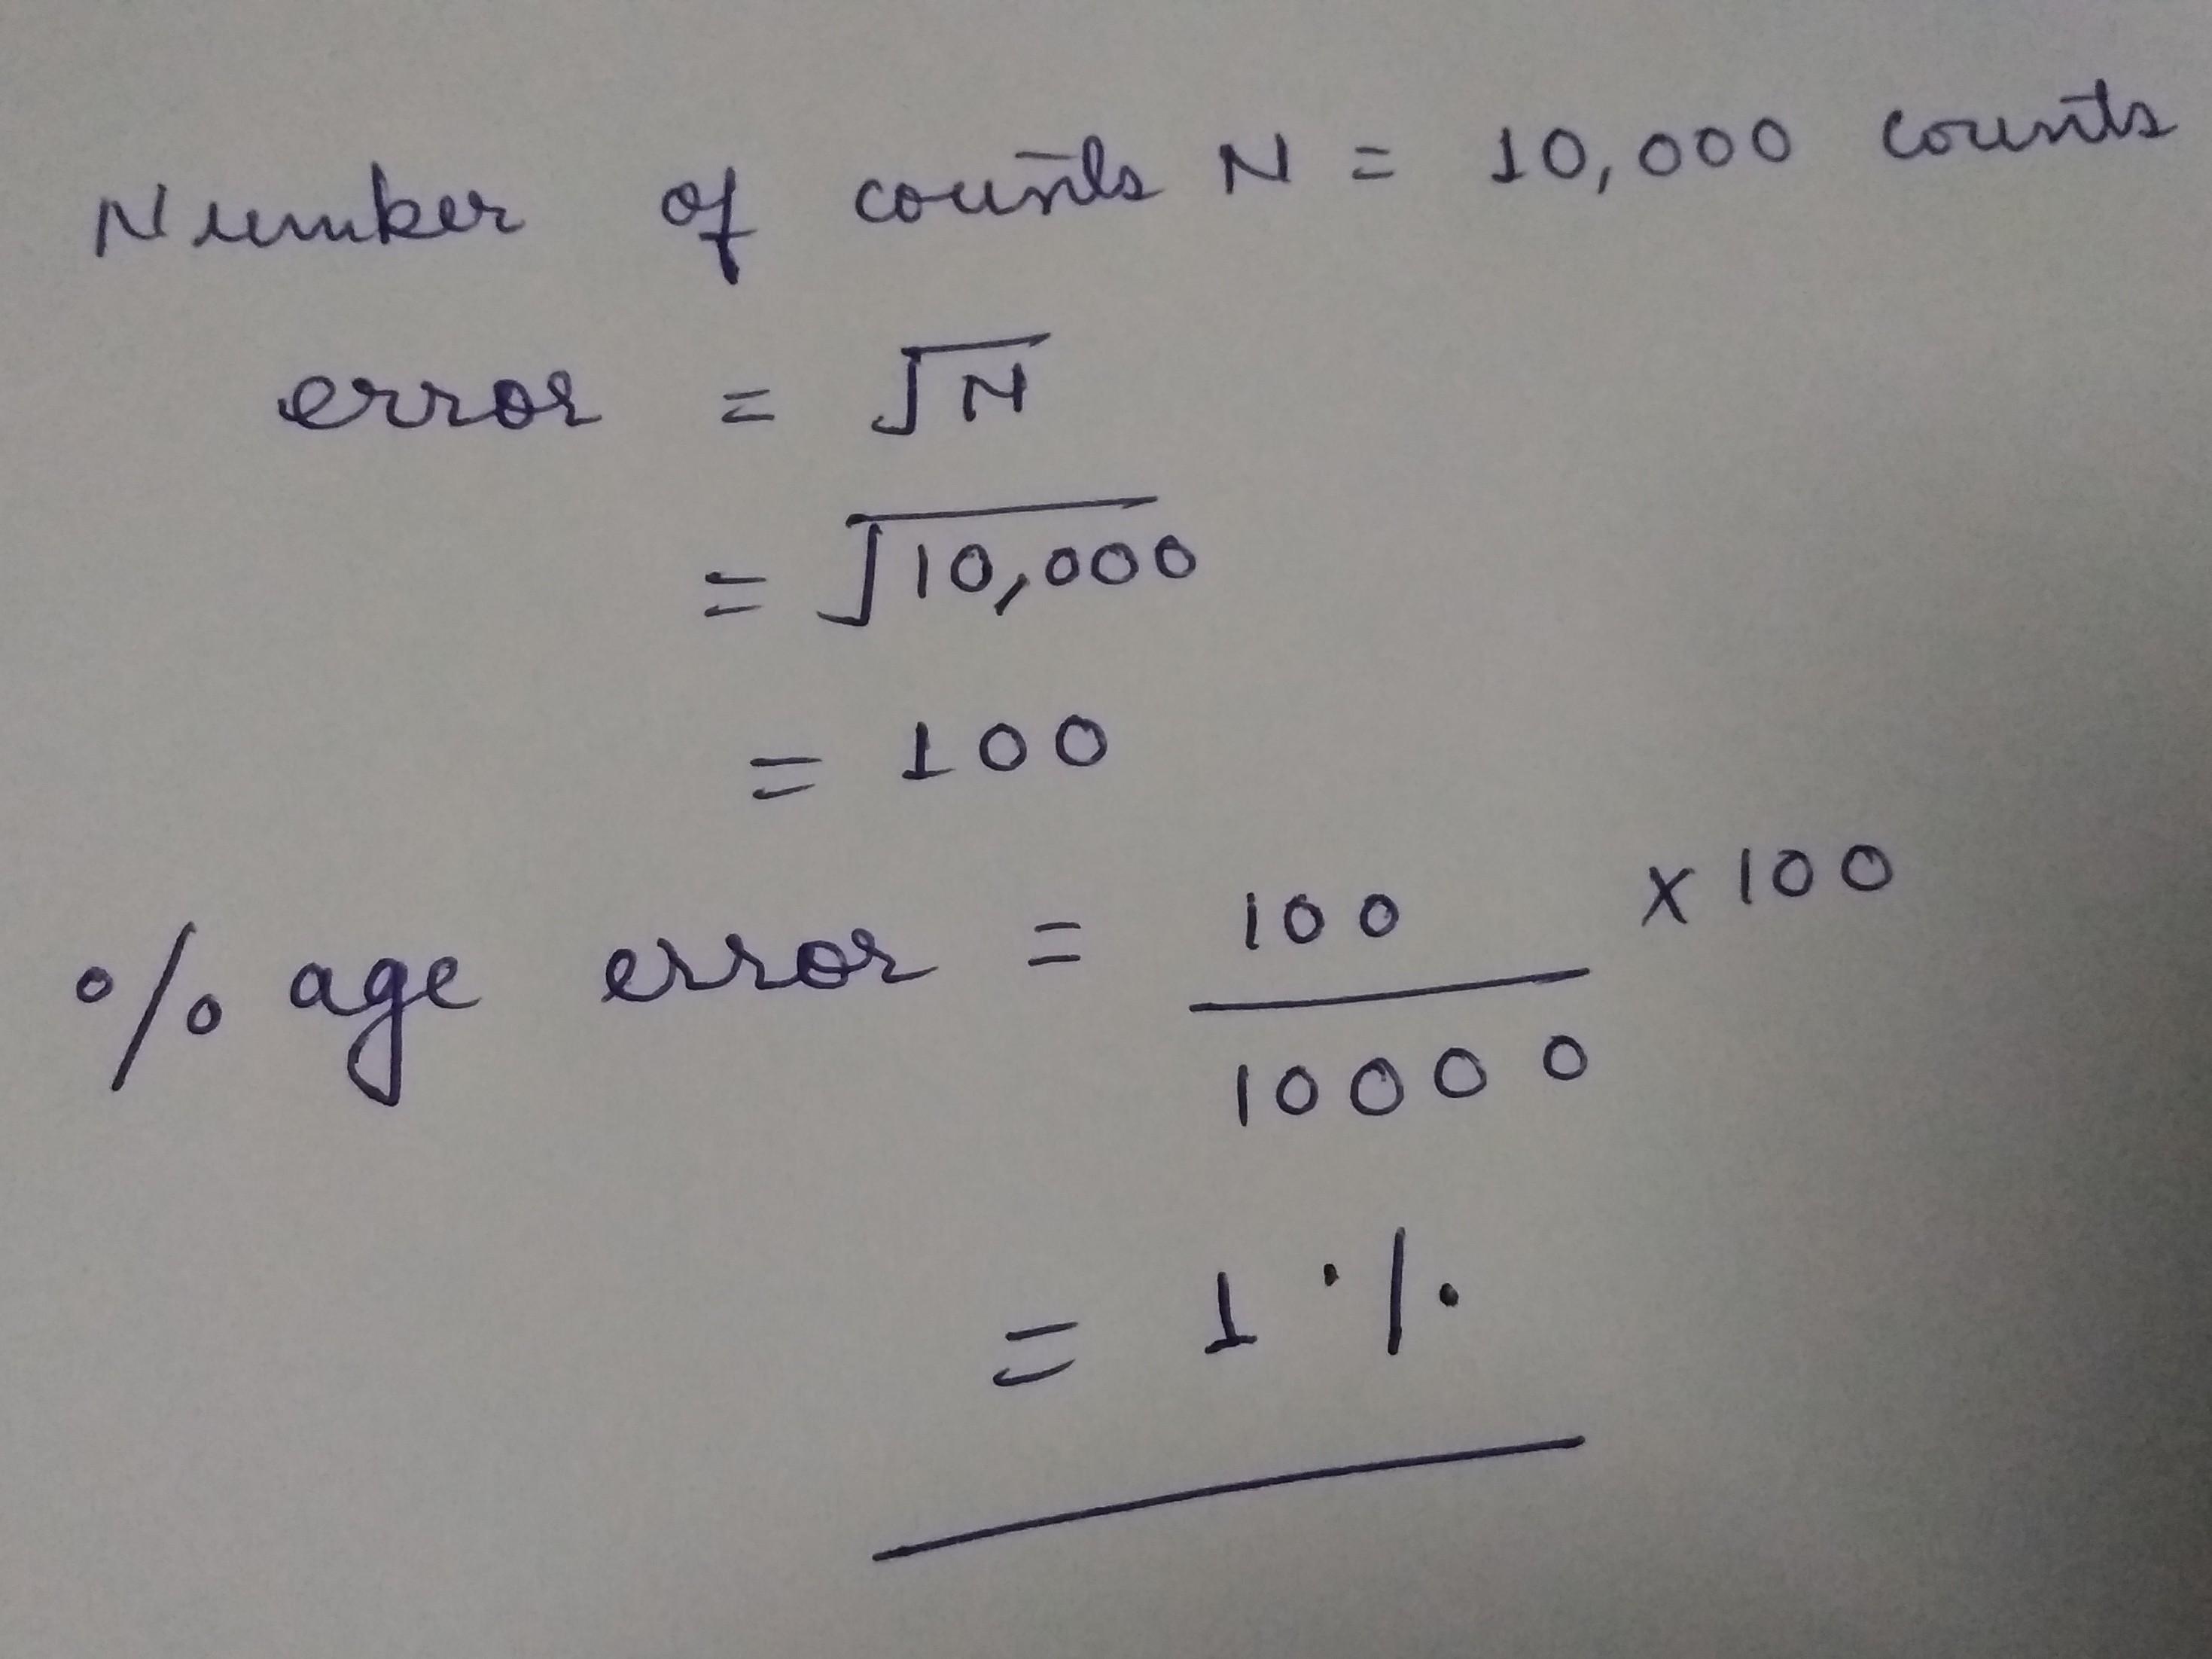 Number of counts N = 10,000 counts
error = √N
= √10,000
= 100
% age error = 100/10000 × 100
= 1 %